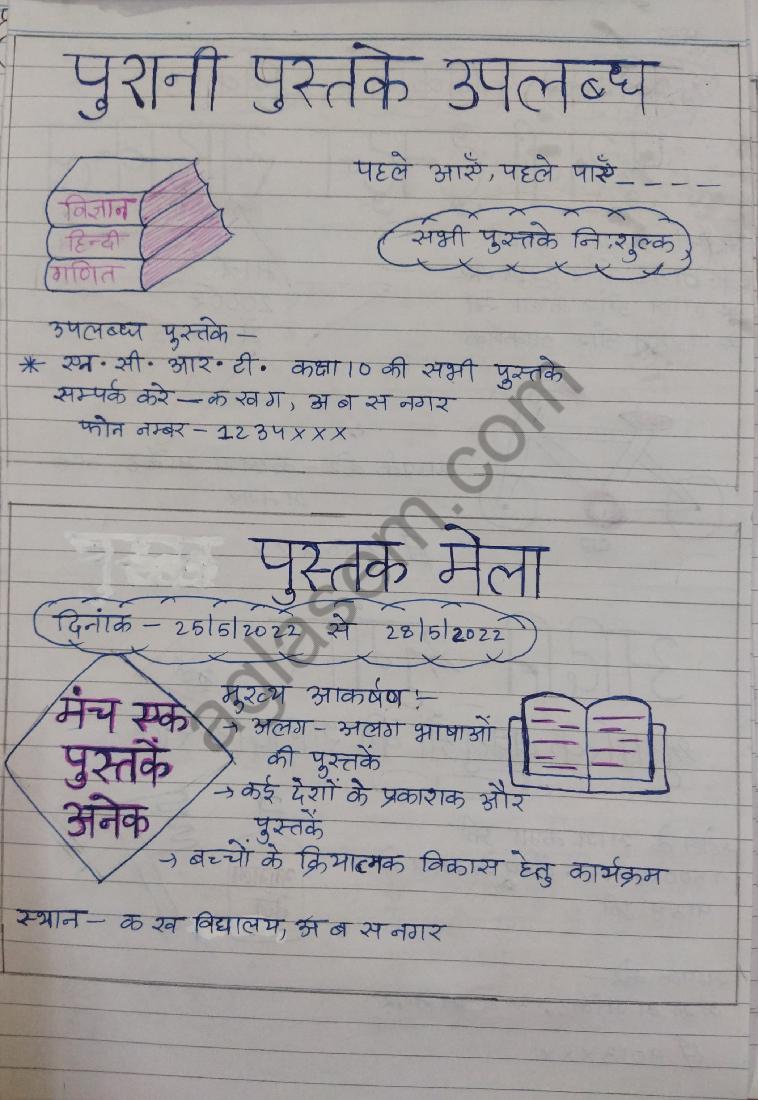 पुरानी पुस्तके उपलब्ध
पहले आएँ, पहले पाएँ----
विज्ञान
हिन्दी
गणित
सभी पुस्तके नि:शुल्क
उपलब्ध पुस्तके –
* एन. सी. आर. टी. कक्षा 10 की सभी पुस्तके
सम्पर्क करे – क ख ग, अ ब स नगर
फोन नम्बर – 1234xxx
पुस्तक मेला
दिनांक – 25/5/2022 से 28/5/2022
मंच एक
पुस्तकें
अनेक
मुख्य आकर्षण :-
→ अलग-अलग भाषाओं
की पुस्तकें
→ कई देशों के प्रकाशक और
पुस्तकें
→ बच्चों के क्रियात्मक विकास हेतु कार्यक्रम
स्थान – क ख विद्यालय, अ ब स नगर
aglasem.com